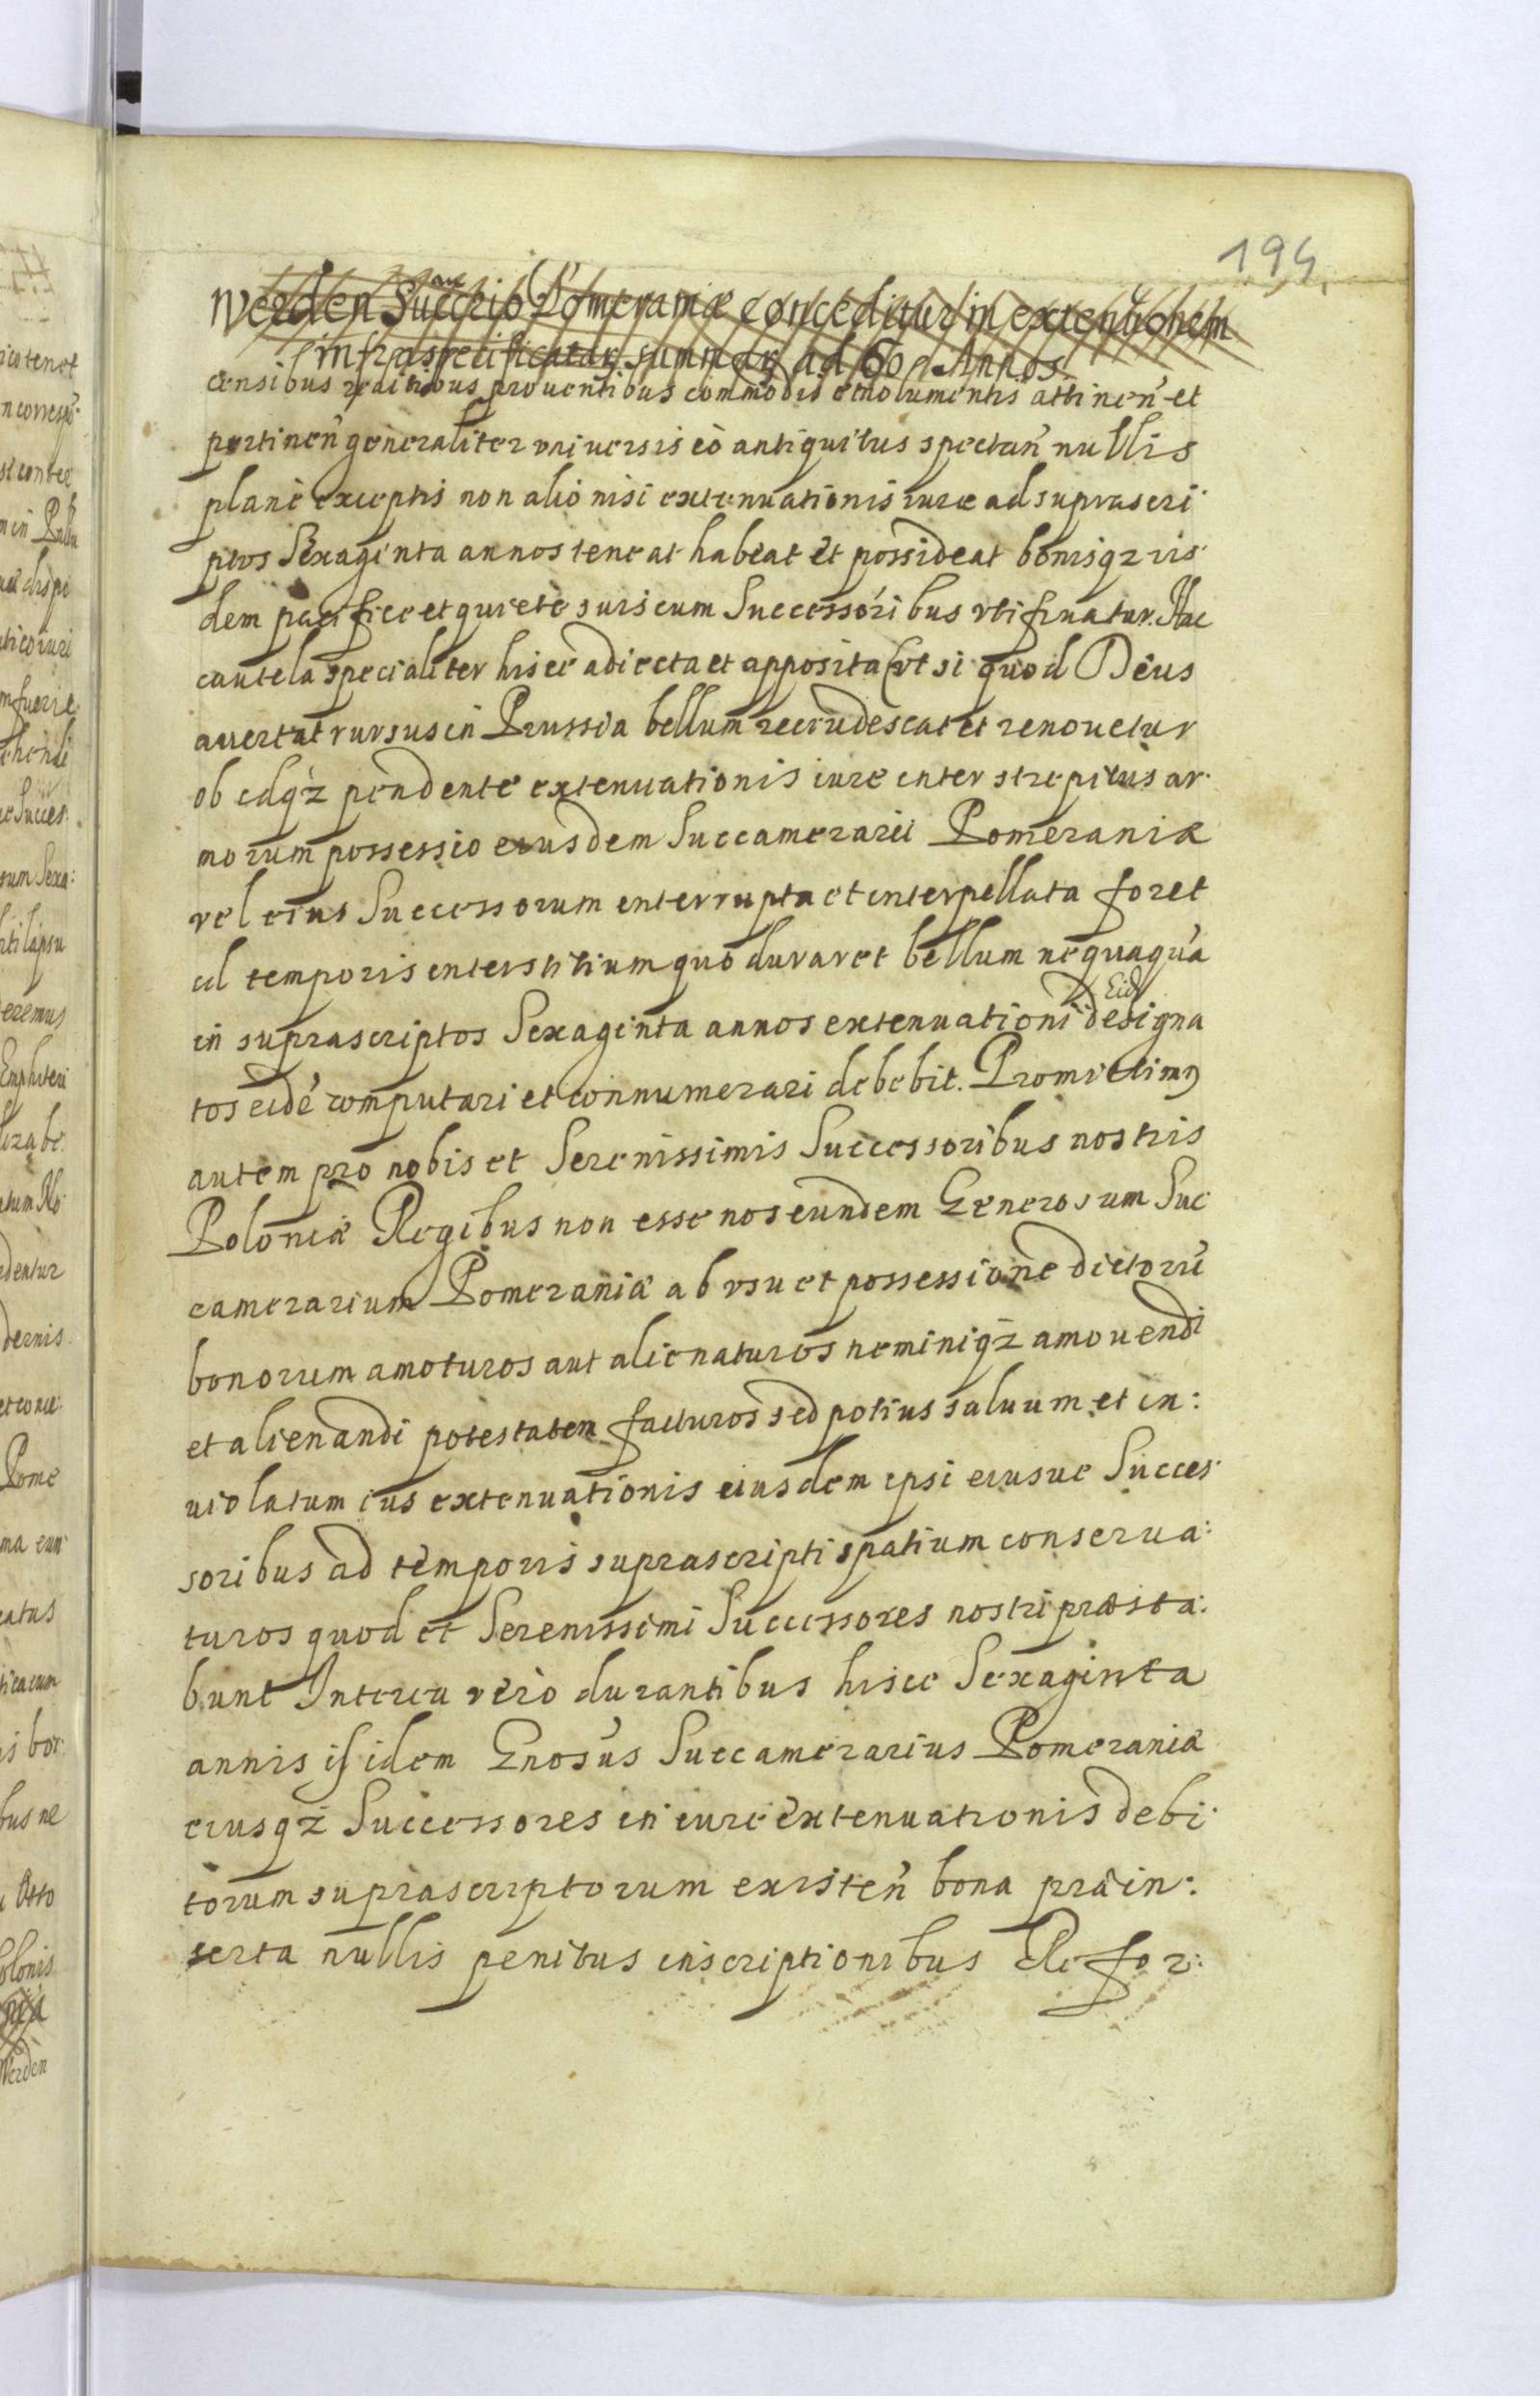 194
Werden Succrio Pomeraniæ conceditur in extenuōnem
infraspecificatar summar ad 60 Annos
censibus reditibus prouentibus commodis emolumentis attinen̄ et
pertinen̄ generaliter vniuersis eò antiquitus spectan̄ nullis
planè exceptis non alio nisi extenuationis iure ad suprascri
ptos Sexaginta annos teneat habeat et possideat bonisqz iis
dem pacificè et quietè suis cum Successoribus vti fruatur. Hac
cautela specialiter hisce adiecta et apposita (vt si quod Deus
auertat rursus in Prussia bellum recrudescat et renouetur
ob idqz pendente extenuationis iure inter strepitus ar
morum possessio eiusdem Succamerarii Pomeraniæ
vel eius Successorum interrupta et interpellata foret
id temporis interstitium quo duraret bellum nequaquā
Eid
in suprascriptos Sexaginta annos extenuationi designa
tos eidē computari et connumerari debebit. Promittimꝰ
autem pro nobis et Serenissimis Successoribus nostris
Poloniæ Regibus non esse nos eundem Generosum Suc
camerarium Pomeraniæ ab vsu et possessione dictorū
bonorum amoturos aut alienaturos neminiqz amouendi
et alienandi potestatem facturos sed potius saluum et in:
uiolatum ius extenuationis eiusdem ipsi eiusue Succes
soribus ad temporis suprascripti spatium conserua:
turos quod et Serenissimi Successores nostri præsta:
bunt Interea verò durantibus hisce Sexaginta
annis isidem Gnosus Succamerarius Pomeraniæ
eiusqz Successores in iure extenuationis debi
torum suprascriptorum existen̄ bona præin:
serta nullis penitus inscriptionibus Re for: